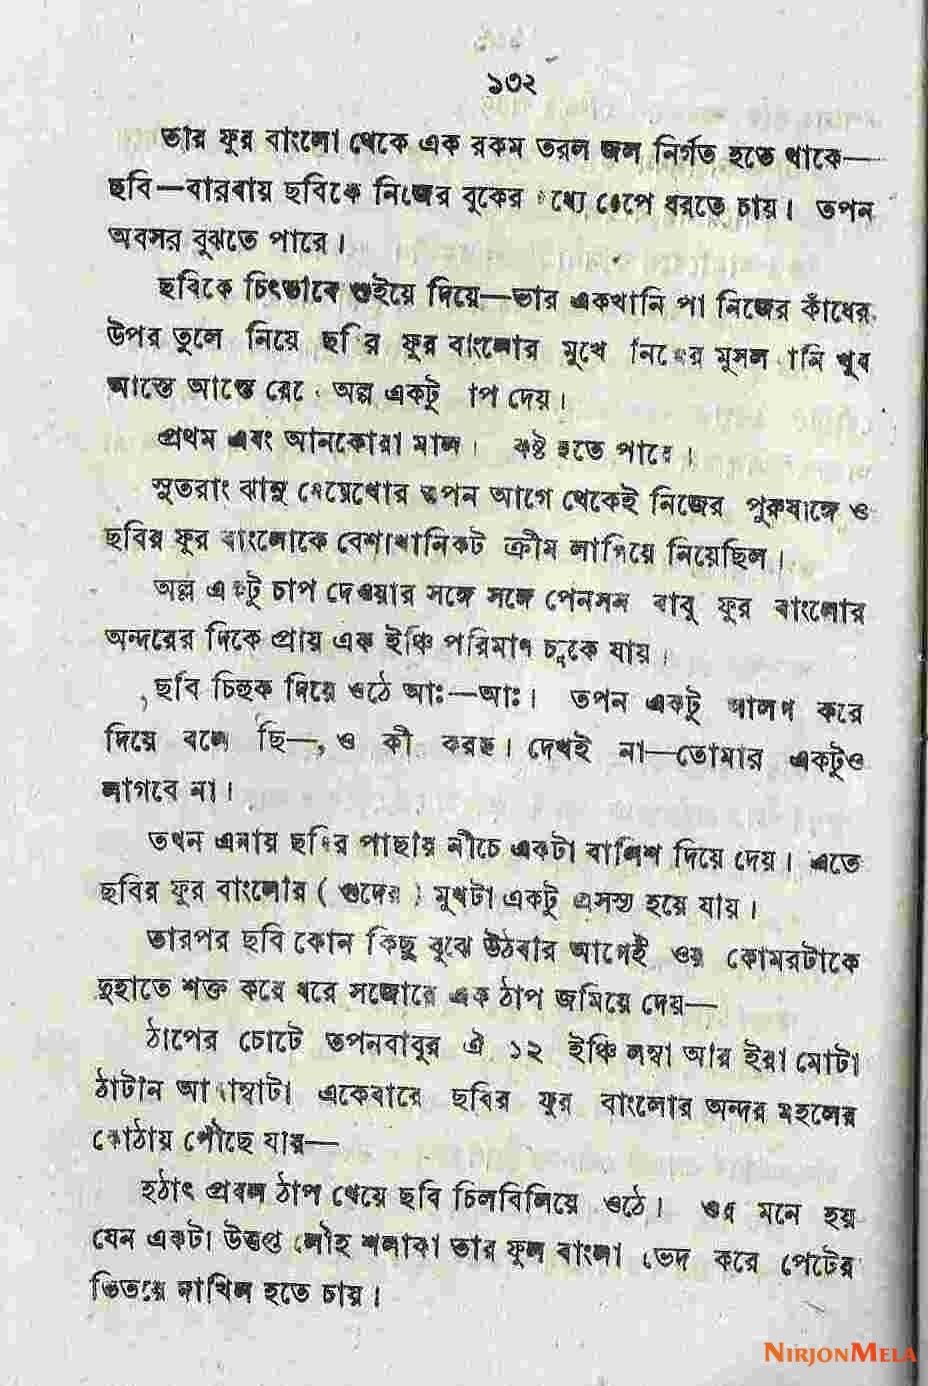 ১৩২
তার ফুর বাংলো থেকে এক রকম তরল জল নির্গত হতে থাকে—
ছবি—বারবায় ছবিকে নিজের বুকের চেপে ধরতে চায়। তপন
অবসর বুঝতে পারে।
ছবিকে চিৎভাবে শুইয়ে দিয়ে—তার একখানি পা নিজের কাঁধের
উপর তুলে নিয়ে ছবির ফুর বাংলোর মুখে মুসল খুব
আস্তে আস্তে অল্প একটু দেয়।
প্রথম এবং আনকোরা মাল। কষ্ট হতে পারে।
সুতরাং ঝানু তপন আগে থেকেই নিজের পুরুষাঙ্গে ও
ছবির ফুর বাংলোকে ক্রীম লাগিয়ে নিয়েছিল।
অল্প একটু চাপ দেওয়ার সঙ্গে সঙ্গে পেনসন বাবু ফুর বাংলোর
অন্দরের দিকে প্রায় এক ইঞ্চি পরিমাণ ঢুকে যায়।
ছবি দিয়ে ওঠে আঃ—আঃ। তপন একটু করে
দিয়ে বলে ছি—, ও কী করছ। দেখই না—তোমার একটুও
লাগবে না।
তখন এবায় ছবির পাছায় নীচে একটা বালিশ দিয়ে দেয়। এতে
ছবির ফুর বাংলোর ( গুদের ) মুখটা একটু হয়ে যায়।
তারপর ছবি কোন কিছু বুঝে উঠবার আগেই ওর কোমরটাকে
দুহাতে শক্ত করে ধরে সজোরে এক ঠাপ জমিয়ে দেয়—
ঠাপের চোটে তপনবাবুর ঐ ১২ ইঞ্চি লম্বা আর ইয়া মোটা
ঠাটান একেবারে ছবির ফুর বাংলোর অন্দর মহলের
কোঠায় পৌঁছে যায়—
হঠাৎ প্রবল ঠাপ খেয়ে ছবি চিলবিলিয়ে ওঠে। ওর মনে হয়
যেন একটা উত্তপ্ত লৌহ শলাকা তার ফুল বাংলা ভেদ করে পেটের
ভিতরে দাখিল হতে চায়।
NIRJONMELA